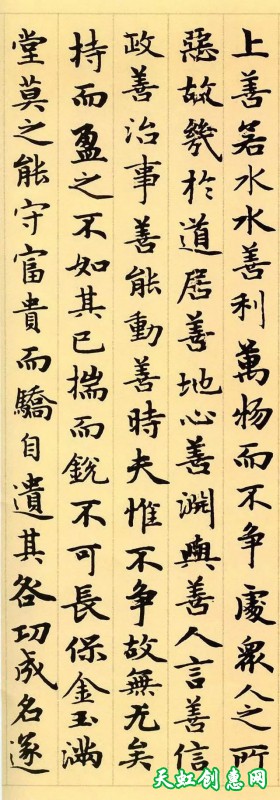 上善若水水善利萬物而不争處衆人之所
惡故幾於道居善地心善淵與善人言善信
政善治事善能動善時夫惟不争故無尤矣
持而盈之不如其已揣而銳不可長保金玉滿
堂莫之能守富貴而驕自遺其咎功成名遂
天虹创惠网